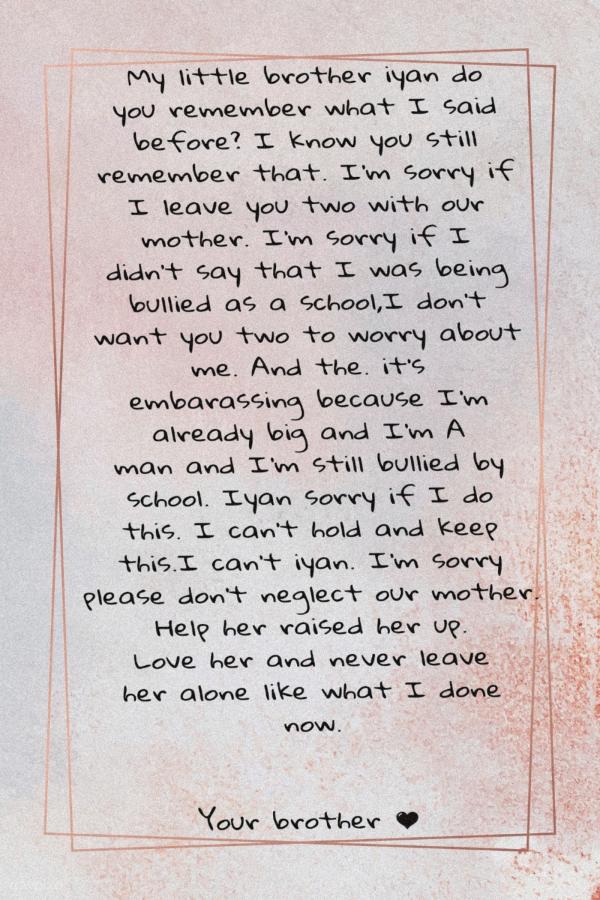 My little brother iyan do
you remember what I said
before? I know you still
remember that. I'm sorry if
I leave you two with our
mother. I'm sorry if I
didn't say that I was being
bullied as a school,I don't
want you two to worry about
me. And the. it's
embarassing because I'm
already big and I'm A
man and I'm still bullied by
school. Iyan sorry if I do
this. I can't hold and keep
this.I can't iyan. I'm sorry
please don't neglect our mother.
Help her raised her up.
Love her and never leave
her alone like what I done
now.
Your brother ♥